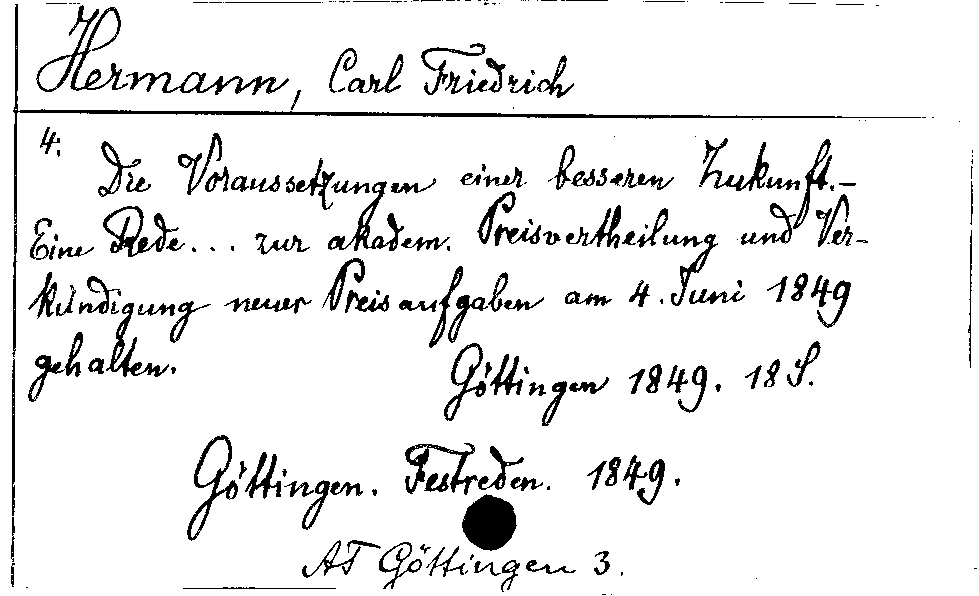 Hermann, Carl Friedrich
4.
Die Voraussetzungen einer besseren Zukunft.-
Eine Rede... zur akadem. Preisvertheilung und Ver-
kündigung neuer Preisaufgaben am 4. Juni 1849
gehalten.
Göttingen 1849. 18 S.
Göttingen. Festreden. 1849.
AT Göttingen 3.